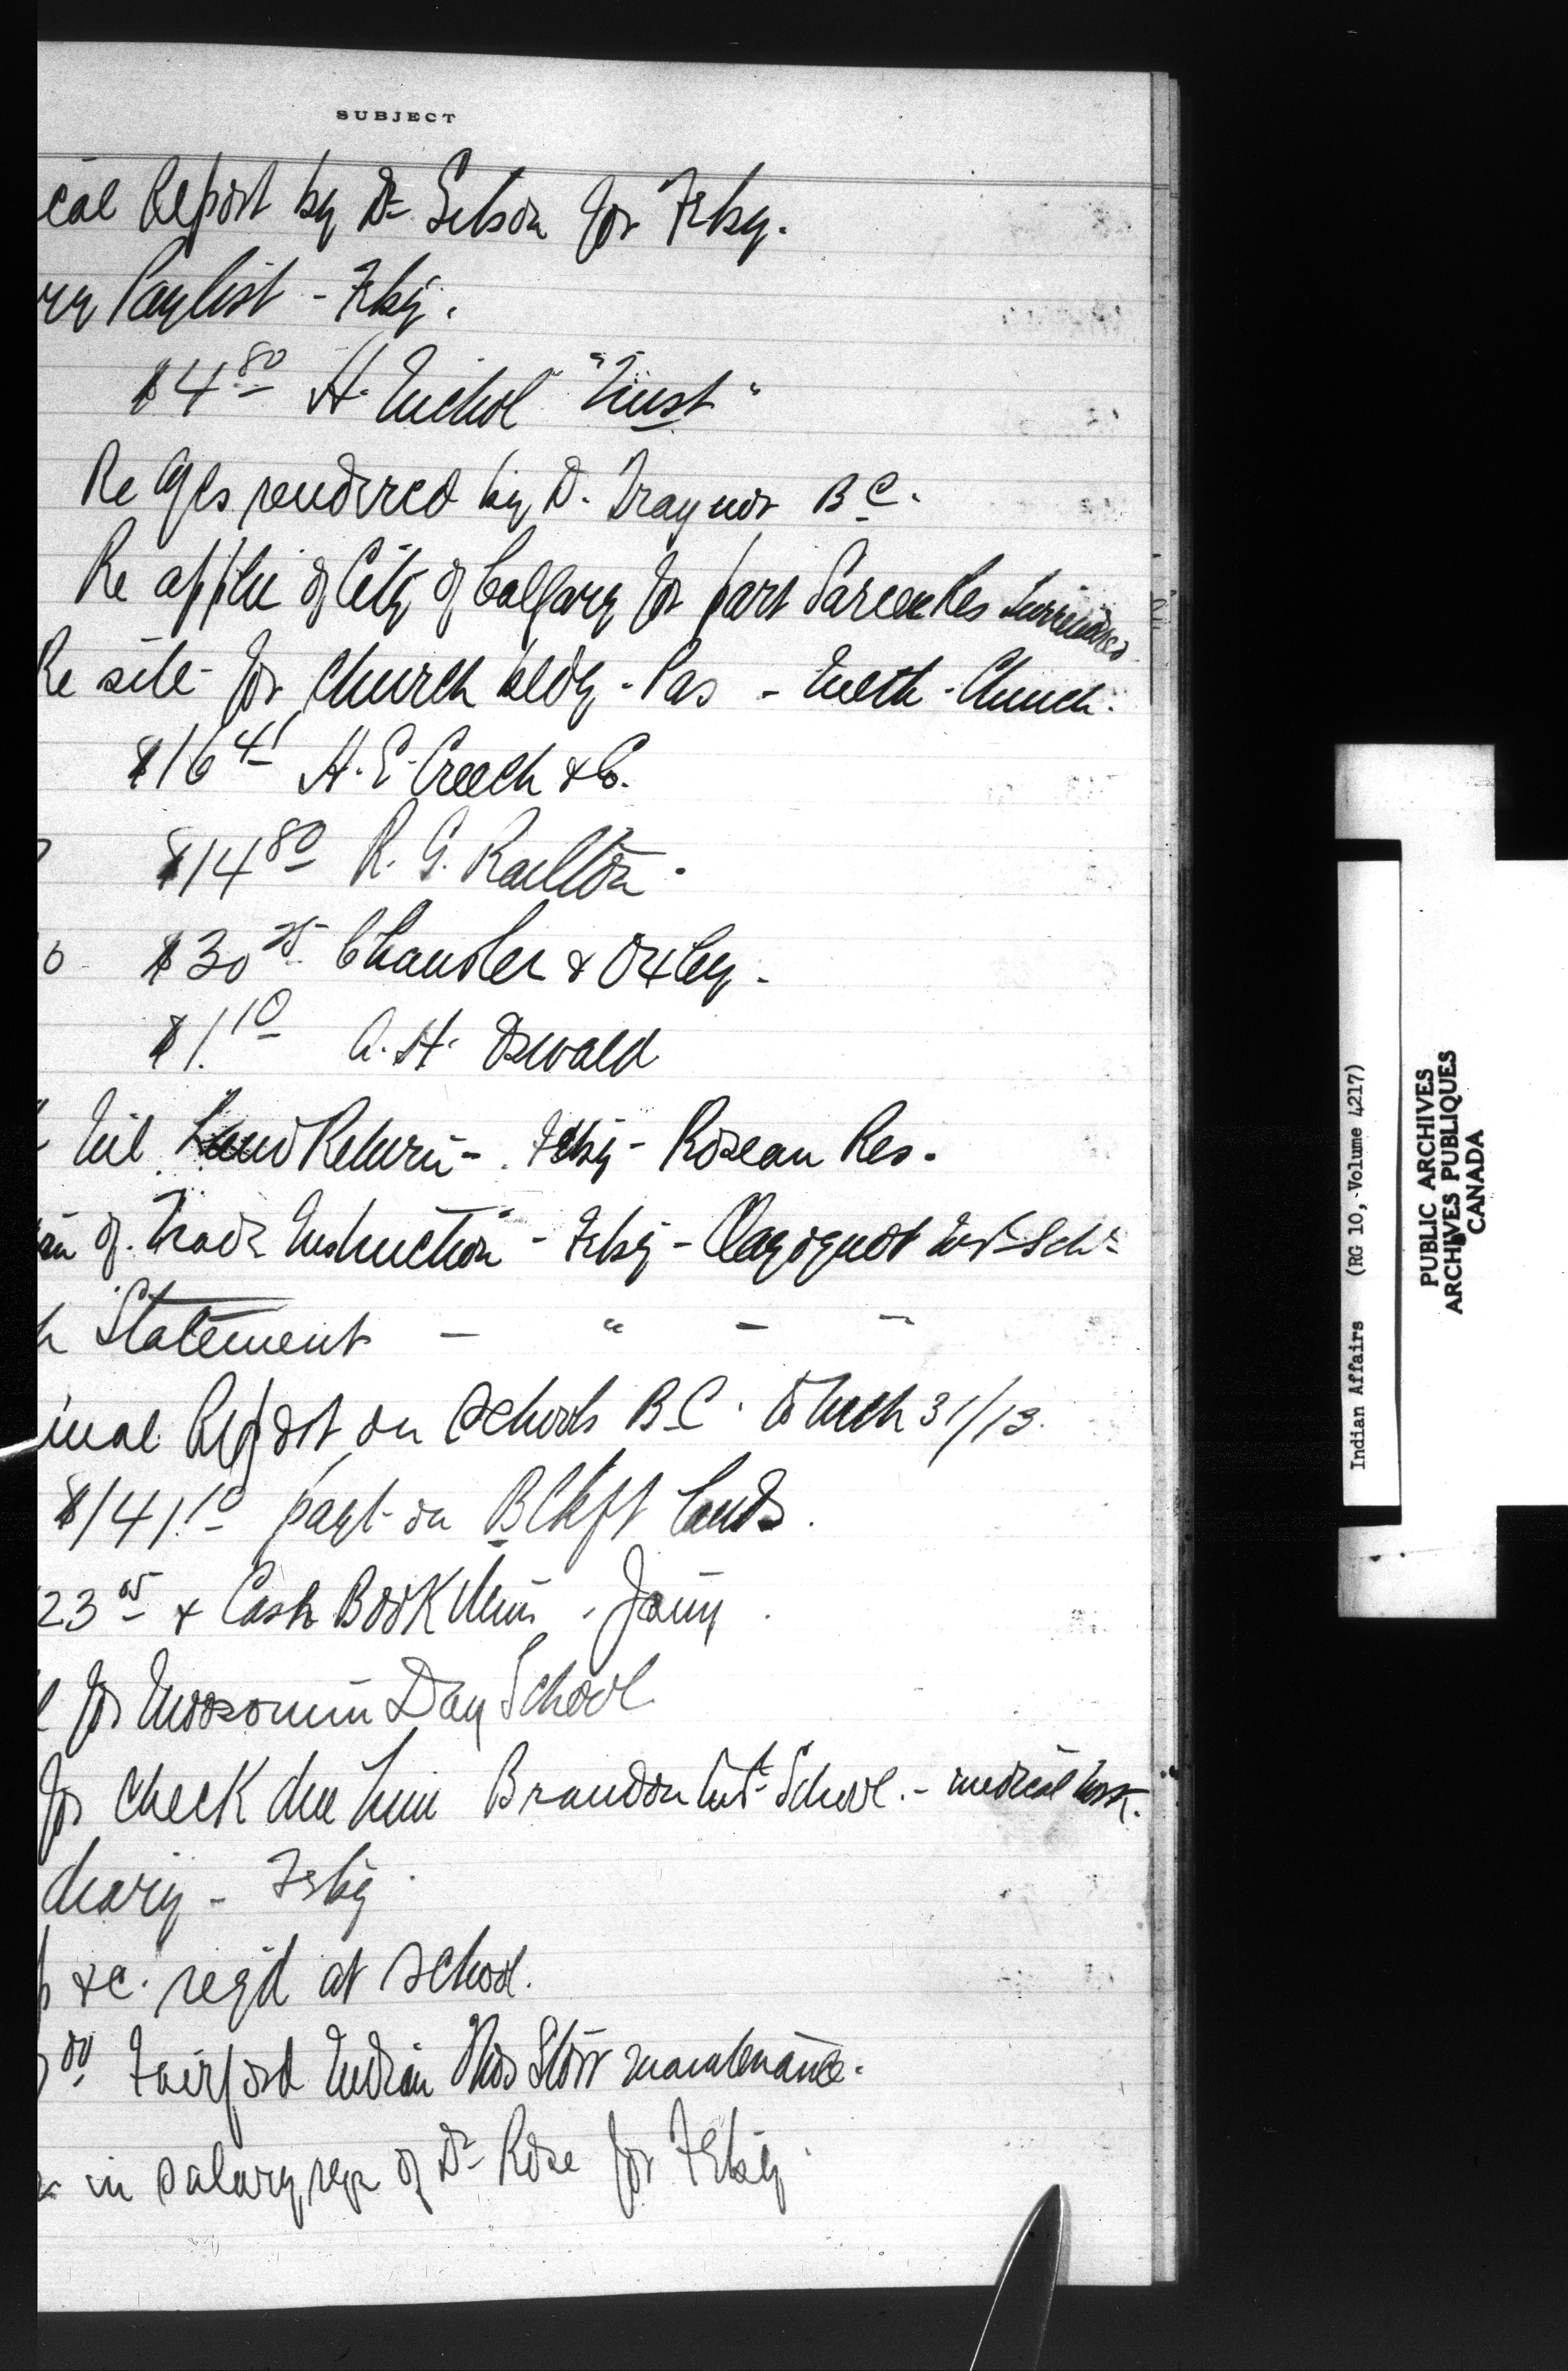 SUBJECT
cal Report by Dr Gibson for Feby.
Paylist - Feby.
$4.80 A. Nichol "Trust"
Re a/cs rendered by D. Traynor B C.
Re applic of City of Calgary for part Sarcee Res Surrendered
Re site for Church bldg - Pas - Meth - Church.
$16 41 H. E. Creech & Co.
$14 80 R. G. Railton.
$30 25 Chandler & Oxley.
$1.10 A. H. Oswald
Nil Land Return - Feby - Roseau Res.
of Trade Instruction - Feby - Clayoquot Indl Schl
h Statement - " - "
Report on Schools B C. to Mch 31/13.
$141.10 payt on Blkft lands.
23 05 & Cash Book - Jany
for Moosomin Day School
for check due him Brandon Indl School. - medical work.
diary - Feby
&c. reqd at school.
00 Fairford Indian Hos Storr maintenance.
in salary of Dr Rose for Feby
Indian Affairs (RG 10, Volume 4217)
PUBLIC ARCHIVES
ARCHIVES PUBLIQUES
CANADA